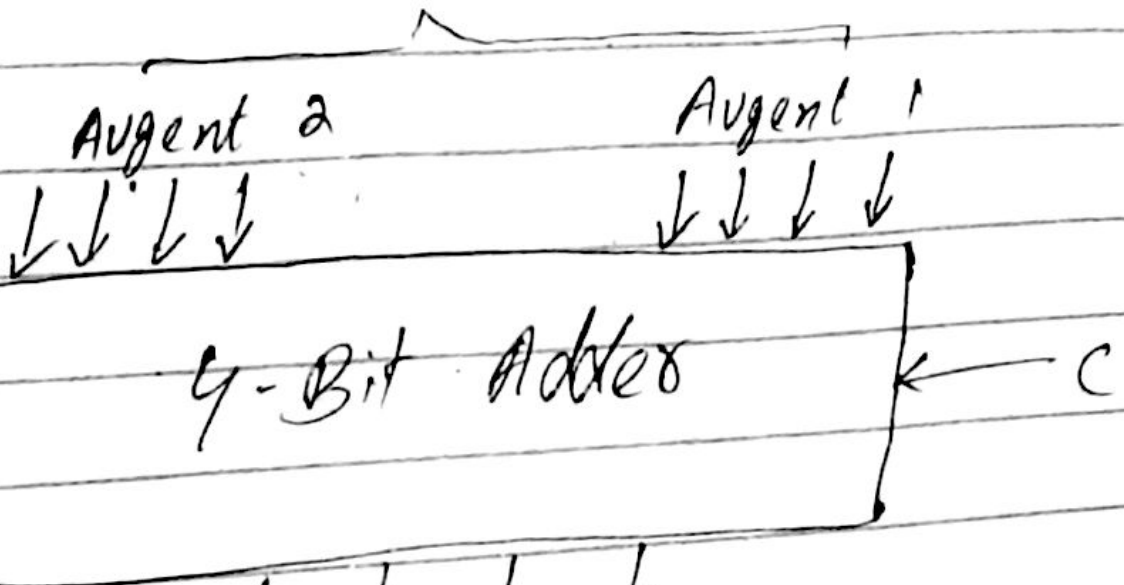 Augent 2 Augent 1
4-Bit Adder C